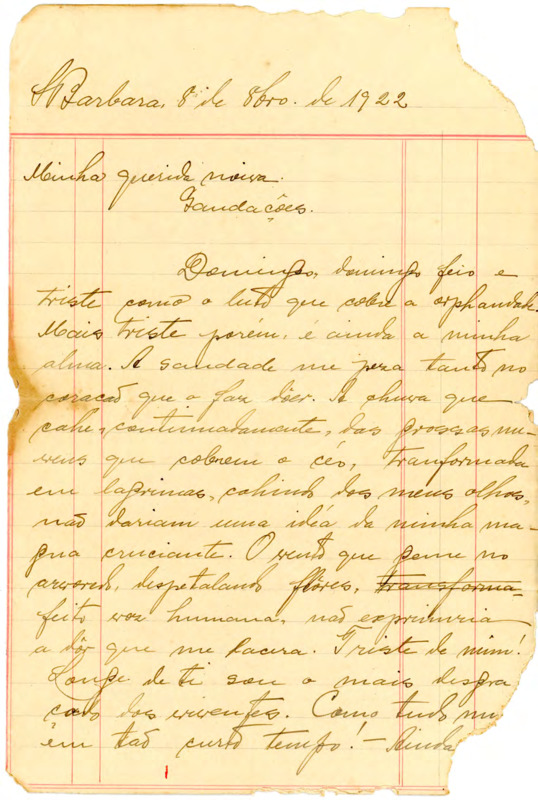 S Barbara, 8 de 8bro. de 1922
Minha querida noiva.
Saudações.
Domingo, domingo feio e
triste como o luto que cobre a orphandade.
Mais triste porém, é ainda a minha
alma. A saudade me peza tanto no
coração que o faz dôer. A chuva que
cahe, continuadamente, das grossas nu-
vens que cobrem o céo, tranformada
em lagrimas, cahindo dos meus olhos,
não dariam uma idéa da minha ma-
gua cruciante. O vento que geme no
arvoredo, despetalando flôres, transforma-
feito voz humana, não exprimiria
a dôr que me lacera. Triste de mim!
Longe de ti sou o mais desgra
çado dos viventes. Como tudo mu
em tão curto tempo! - Ainda